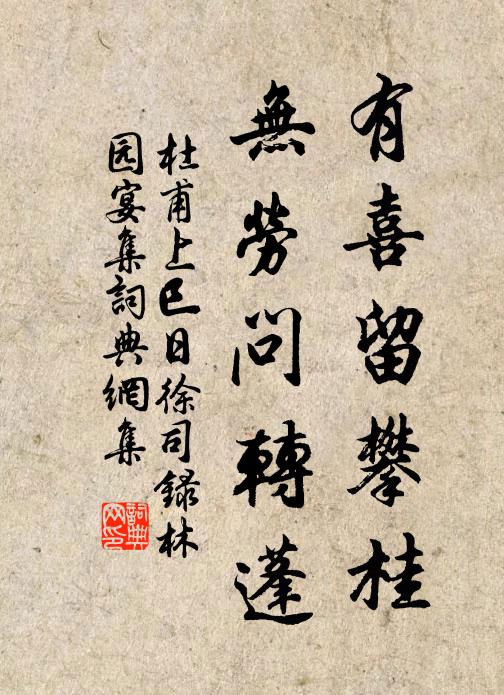 有喜留攀桂
無勞問轉蓬
杜甫上巳日徐司錄林
园宴集詞典網集
詞典
网印